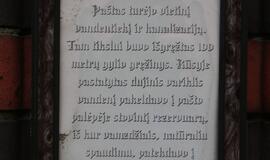 Paštas turėjo vietinį
vandentiekį ir kanalizaciją.
Tam tikslui buvo išgręžtas 100
metrų gylio gręžinys. Rūsyje
pastatytas dujinis variklis
vandenį pakeldavo į pašto
palėpėje stovintį rezervuarą,
iš kur vamzdžiais, natūraliu
spaudimu, patekdavo į